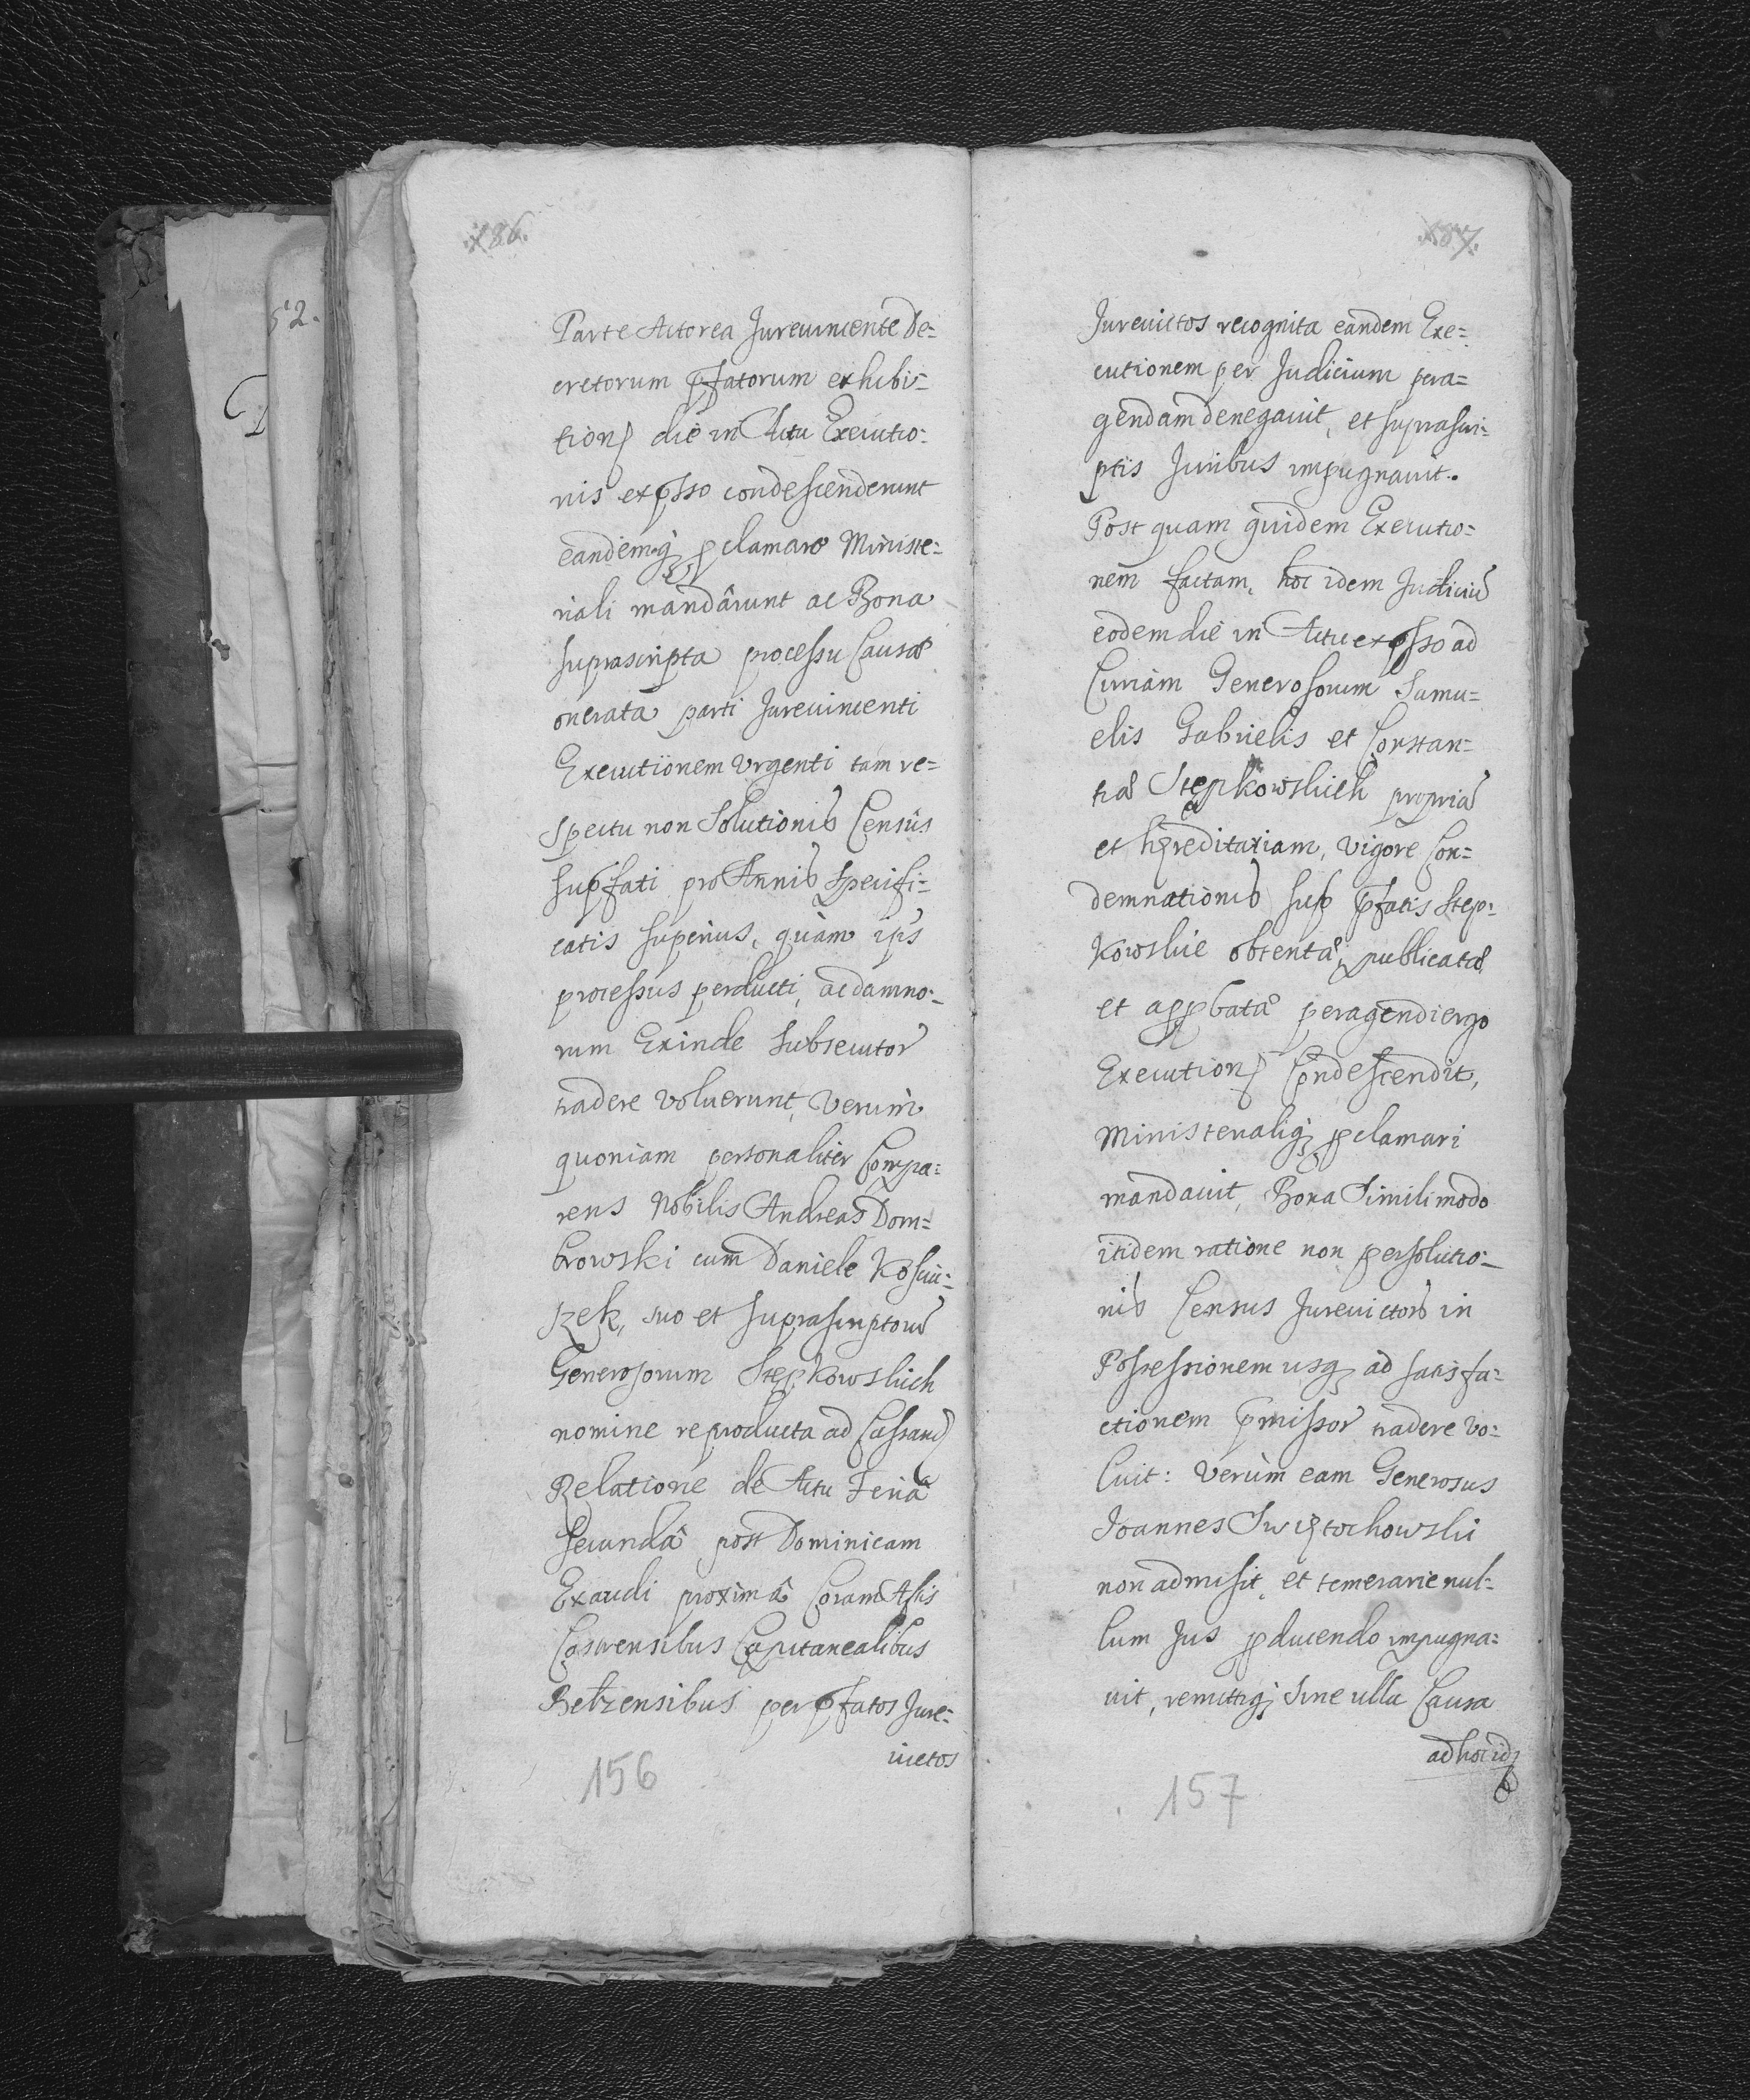 186.
Parte Actorea Jurevincente De=
cretorum pfatorum exhibi=
tione die in Actu Executio=
nis expsso condescenderunt
eandemq pclamare Ministe=
riali mandârunt ac Bona
suprascripta processu Causæ
onerata parti Jurevincenti
Executionem Urgenti tam re=
spectu non Solutionis Censûs
supfati pro Annis Specifi=
catis superius, quàm ips
processus perducti, ac damno=
rum Exinde Subsecutor
tradere voluerunt, Verùm
quoniam personaliter Compa=
rens Nobilis Andreas Dom=
browski cum Daniele Kosciu=
szek, suo et suprascriptorum
Generosorum Stępkowskich
nomine reproducta ad Cassand
Relatione de Actu Feriâ
Secundâ post Dominicam
Exaudi proximâ Coram Actis
Castrensibus Capitanealibus
Belzensibus per pfatos Jure=
victos
156
187.
Jurevictos recognita eandem Exe=
cutionem per Judicium pera=
gendam denegavit, et suprascri=
ptis Juribus impugnavit.
Post quam quidem Executio=
nem factam, hoc idem Judiciu
eodem die in Actu expsso ad
Curiam Generosorum Samu=
elis Gabrielis et Constan=
tiæ Stępkowskich propria
et hęreditariam, vigore Con=
demnationis sup pfatis Stęp=
kowskie obtentæ, publicatæ
et appbatæ peragendi ergo
Execution Condescendit,
Ministerialiq pclamari
mandavit, Bona Simili modo
itidem ratione non persolutio=
nis Census Jurevictors in
Possessionem usq ad satisfa=
ctionem pmissor tradere vo=
luit: Verùm eam Generosus
Joannes Swiętochowski
non admisit, et temerarie nul=
lum Jus pducendo impugna=
vit, remittiq Sine ulla Causa
ad hoc id
157
52.